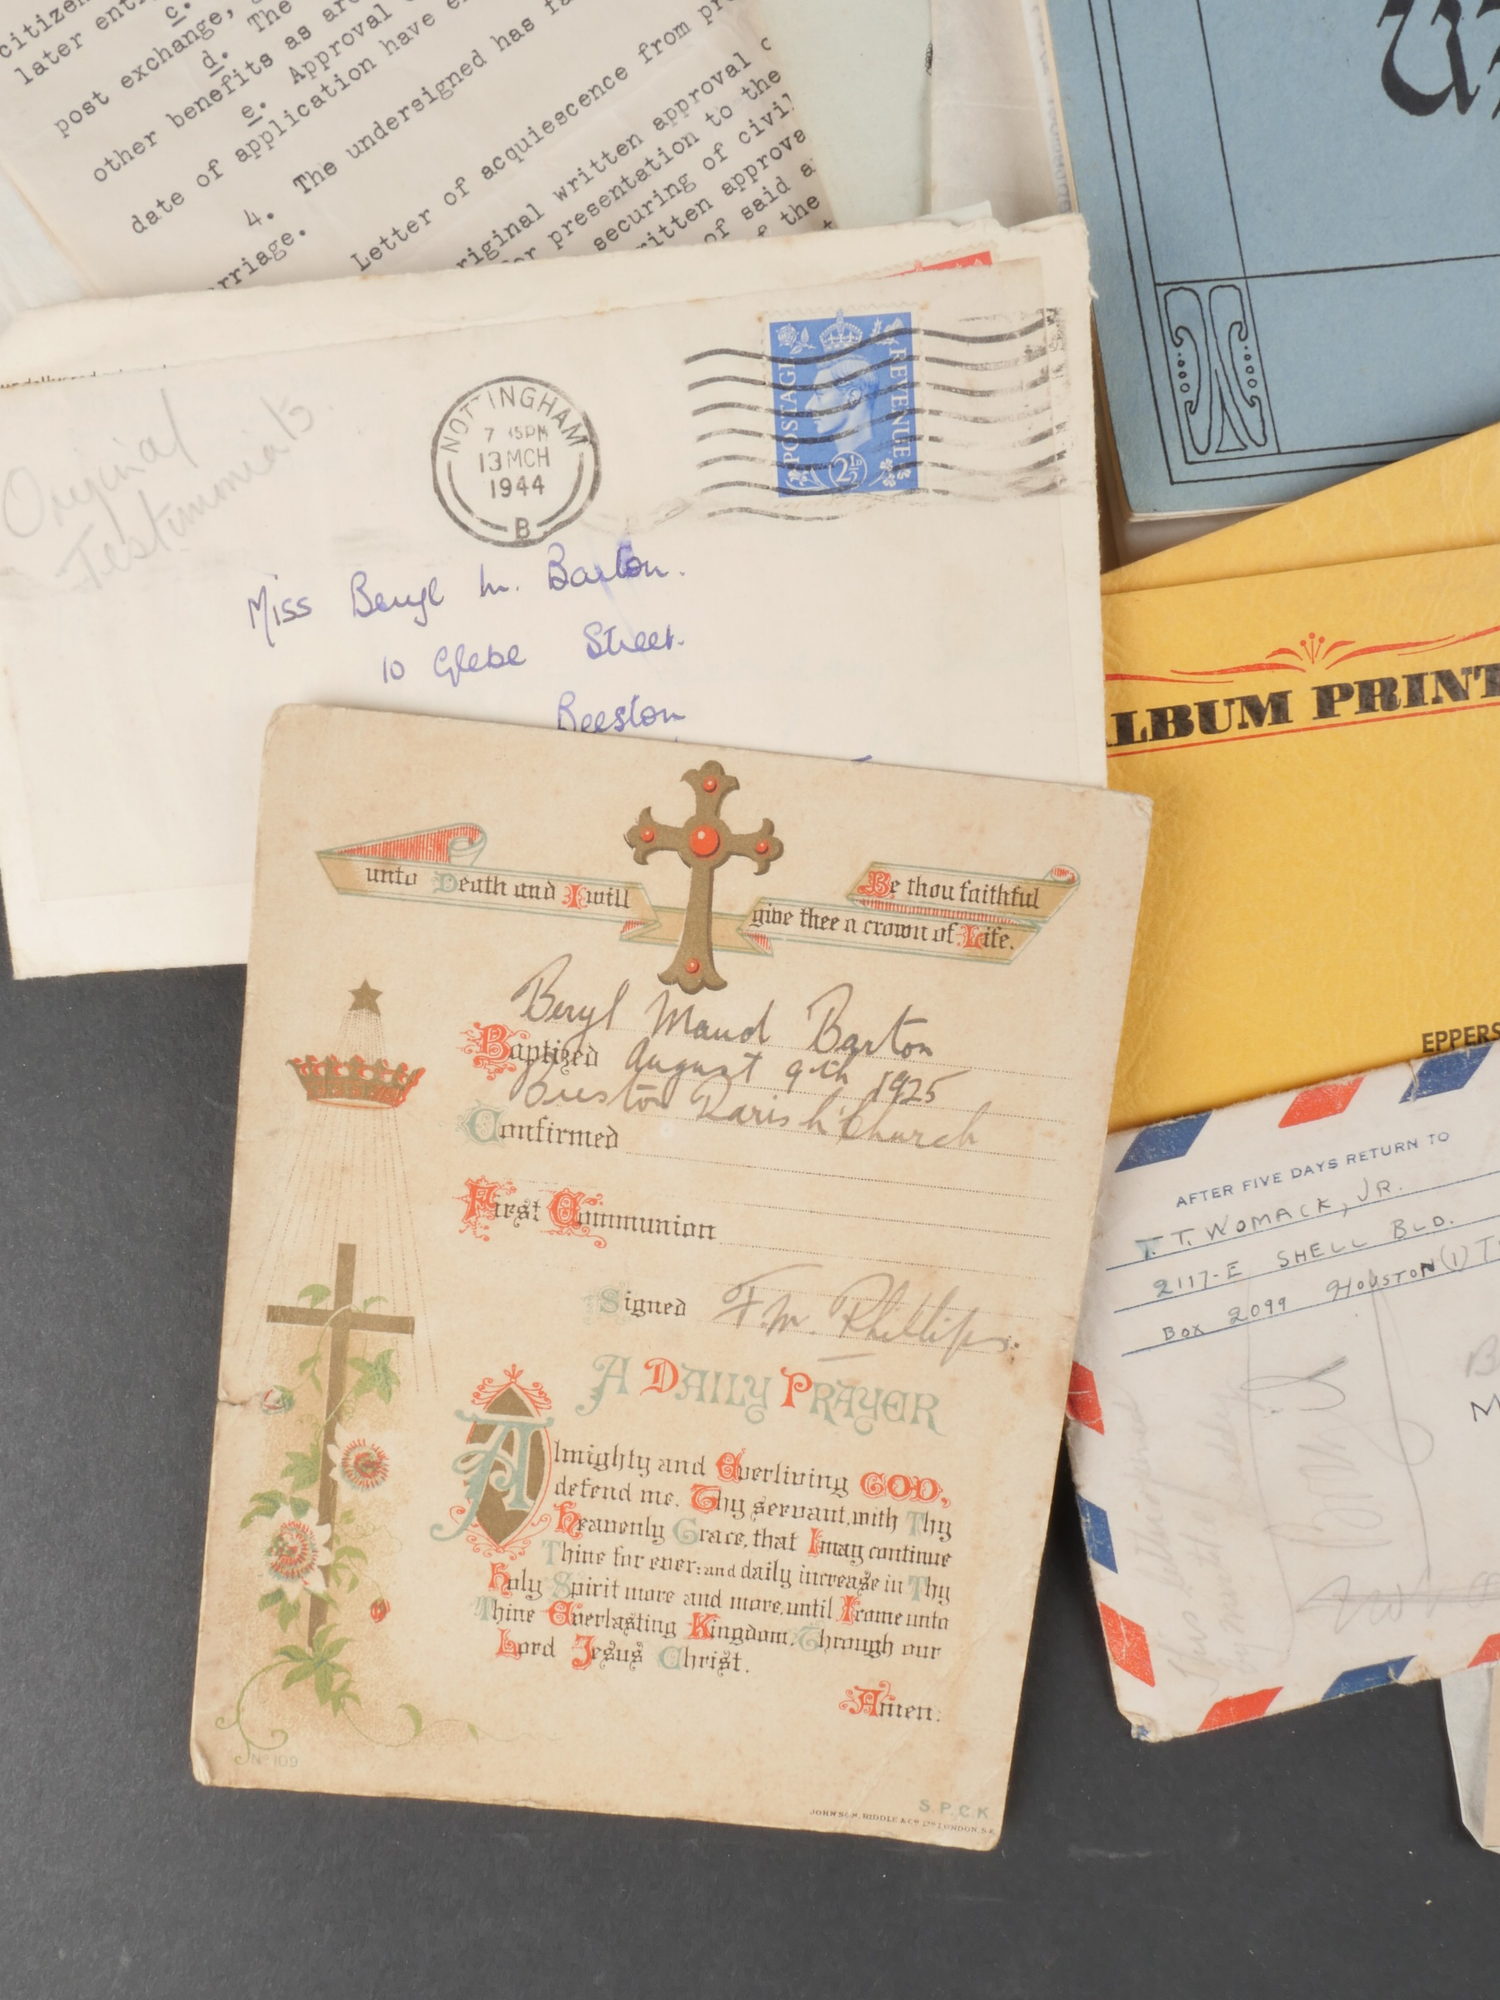 citizen
later
c.
post exchange,
d. The
other benefits as are
e. Approval
date of application have
4. The undersigned has
rriage.
Letter of acquiescence from
riginal written approval
or presentation to the
securing of civil
ritten approva
of said
the
Original
Testimonials
NOTTINGHAM
7 15PM
13 MCH
1944
B
POSTAGE
REVENUE
2½
Miss Beryl M. Barton.
10 Glebe Street.
Beeston
LBUM PRINT
EPPERS
Be thou faithful
unto Death and I will
give thee a crown of Life.
Beryl Maud Barton
Baptized August 9th 1925
Beeston Parish Church
Confirmed
First Communion
Signed F. M. Phillips.
A DAILY PRAYER
Almighty and Everliving GOD,
defend me, Thy servant, with Thy
Heavenly Grace, that I may continue
Thine for ever: and daily increase in Thy
Holy Spirit more and more, until I come unto
Thine Everlasting Kingdom, Through our
Lord Jesus Christ.
Amen.
No 109
S.P.C.K.
JOHNSON, RIDDLE & CO LTD LONDON, S.E.
AFTER FIVE DAYS RETURN TO
T. T. WOMACK, JR.
2117-E SHELL BLD.
BOX 2099 HOUSTON (1)